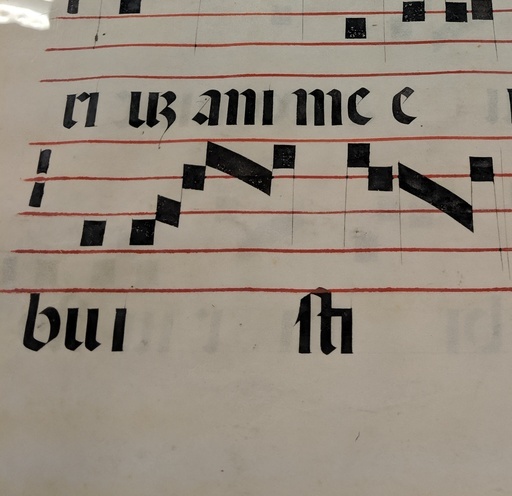 ri uz ani me e
bu i sti